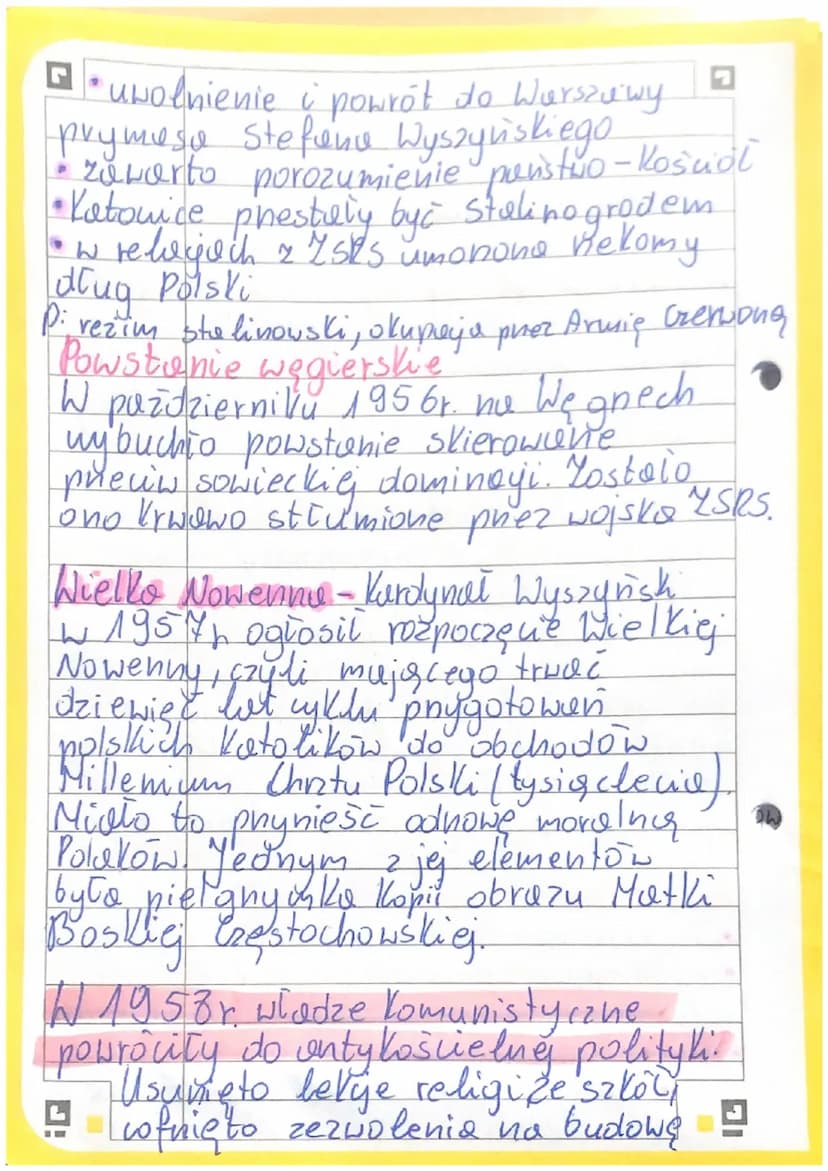 • uwolnienie i powrót do Warszawy
prymasa Stefana Wyszyńskiego
• zawarto porozumienie państwo-Kościół
• Katowice przestały być Stalinogrodem
• w relacjach z ZSRS umorzono rzekomy
dług Polski
P: reżim stalinowski, okupacja przez Armię Czerwoną
Powstanie węgierskie
W październiku 1956r. na Węgrzech
wybuchło powstanie skierowane
przeciw sowieckiej dominacji. Zostało
ono krwawo stłumione przez wojska ZSRS.
Wielka Nowenna - Kardynał Wyszyńsk
w 1957r. ogłosił rozpoczęcie Wielkiej
Nowenny, czyli mającego trwać
dziewięć lat cyklu przygotowań
polskich katolików do obchodów
Millenium Chrztu Polski (tysiąclecia).
Miało to przynieść odnowę moralną
Polaków. Jednym z jej elementów
była pielgrzymka kopii obrazu Matki
Boskiej Częstochowskiej.
W 1958r. władze komunistyczne
powróciły do antykościelnej polityki.
Usunięto lekcje religii ze szkół,
cofnięto zezwolenia na budowę